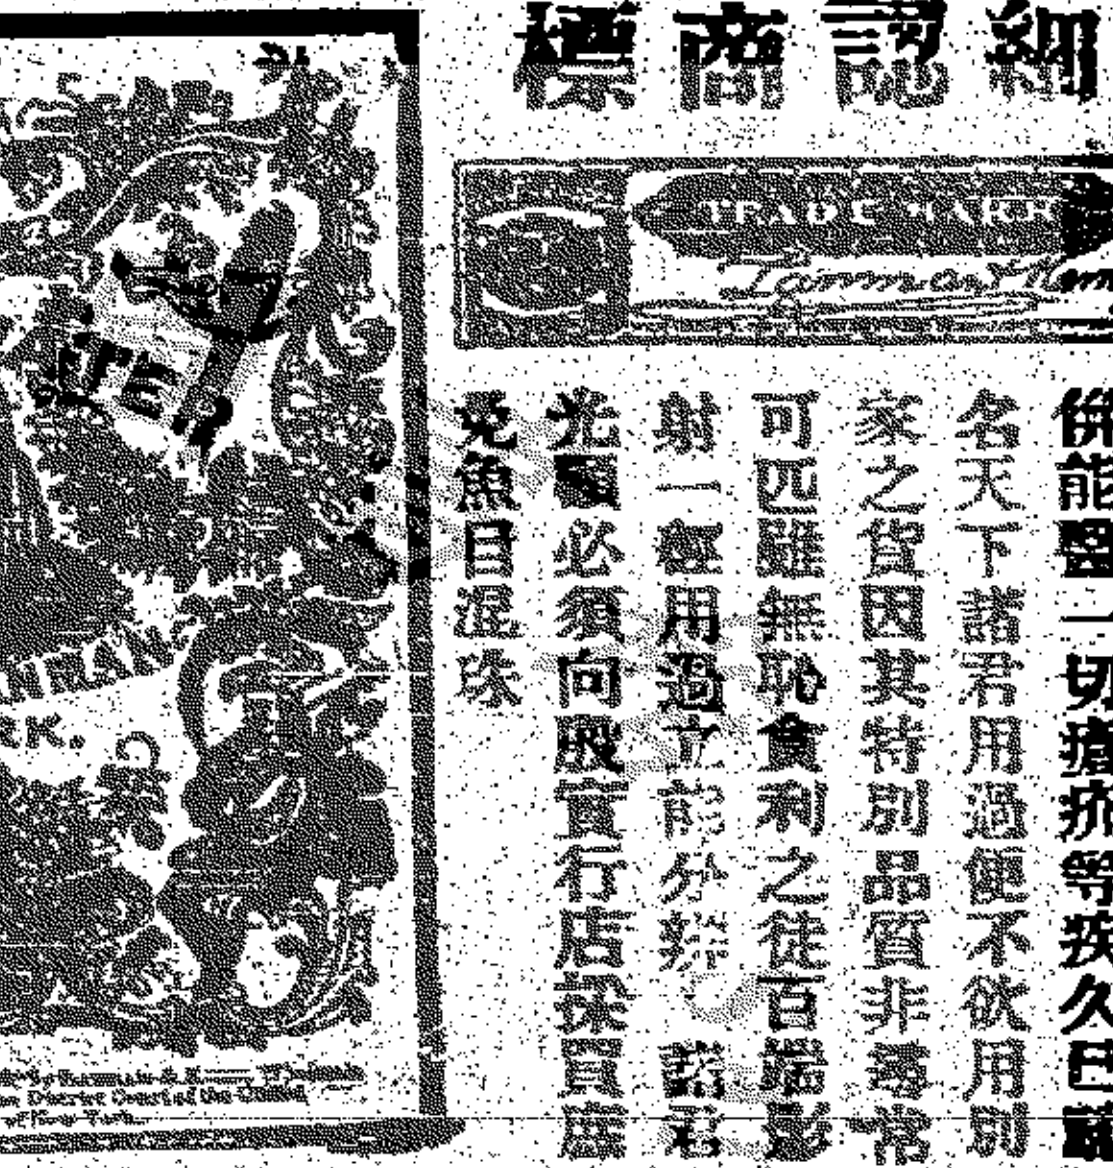 細認商標
TRADE MARK
Lanman
併能醫一切瘡疥等疾久已
名天下諸君用過便不欲用別
家之貨因其特別品質非尋常
可匹雖無恥貪利之徒百端影
射一經用過立能分辨 諸君
光顧必須向殷實行店採買庶
免魚目混珠
RK.
District Court of the United
of New-York.